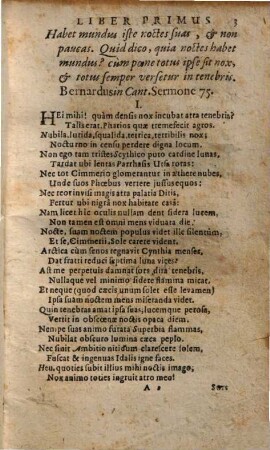 LIBER PRIMUS. 3
Habet mundus iste noctes suas, & non
paucas. Quid dico, quia noctes habet
mundus? cùm pene totus ipse sit nox,
& totus semper versetur in tenebris.
Bernardus in Cant. Sermone 75.
I.
HEi mihi! quàm densis nox incubat atra tenebris?
Talis erat, Pharios quæ tremefecit agros.
Nubila, lurida, squalida, tetrica, terribilis nox;
Nocturno in censu perdere digna locum.
Non ego tam tristes Scythico puto cardine lunas,
Tardat ubi lentas Parrhasis Ursa rotas:
Nec tot Cimmerio glomerantur in æthere nubes,
Unde suos Phœbus vertere jussus equos:
Nec reor invisi magis atra palatia Ditis,
Fertur ubi nigrâ nox habitare casâ:
Nam licet hîc oculis nullam dent sidera lucem,
Non tamen est omni mens viduata die:
Nocte, suam noctem populus videt ille silentûm,
Et se, Cimmerii, Sole carere vident.
Arctica cùm senos regnavit Cynthia menses,
Dat fratri reduci septima luna vices:
Ast me perpetuis damnat sors dira tenebris,
Nullaque vel minimo sidere flamma micat.
Et neque (quod cæcis unum solet esse levamen)
Ipsa suam noctem mens miseranda videt.
Quin tenebras amat ipsa suas, lucemque perosa,
Vertit in obscœnæ noctis opaca diem.
Nempe suas animo furata Superbia flammas,
Nubilat obscuro lumina cæca peplo.
Nec sinit Ambitio nitidum clarescere solem,
Fuscat & ingenuas Idalis igne faces.
Heu, quoties subit illius mihi noctis imago,
Nox animo toties ingruit atra meo!
A 2 Sors